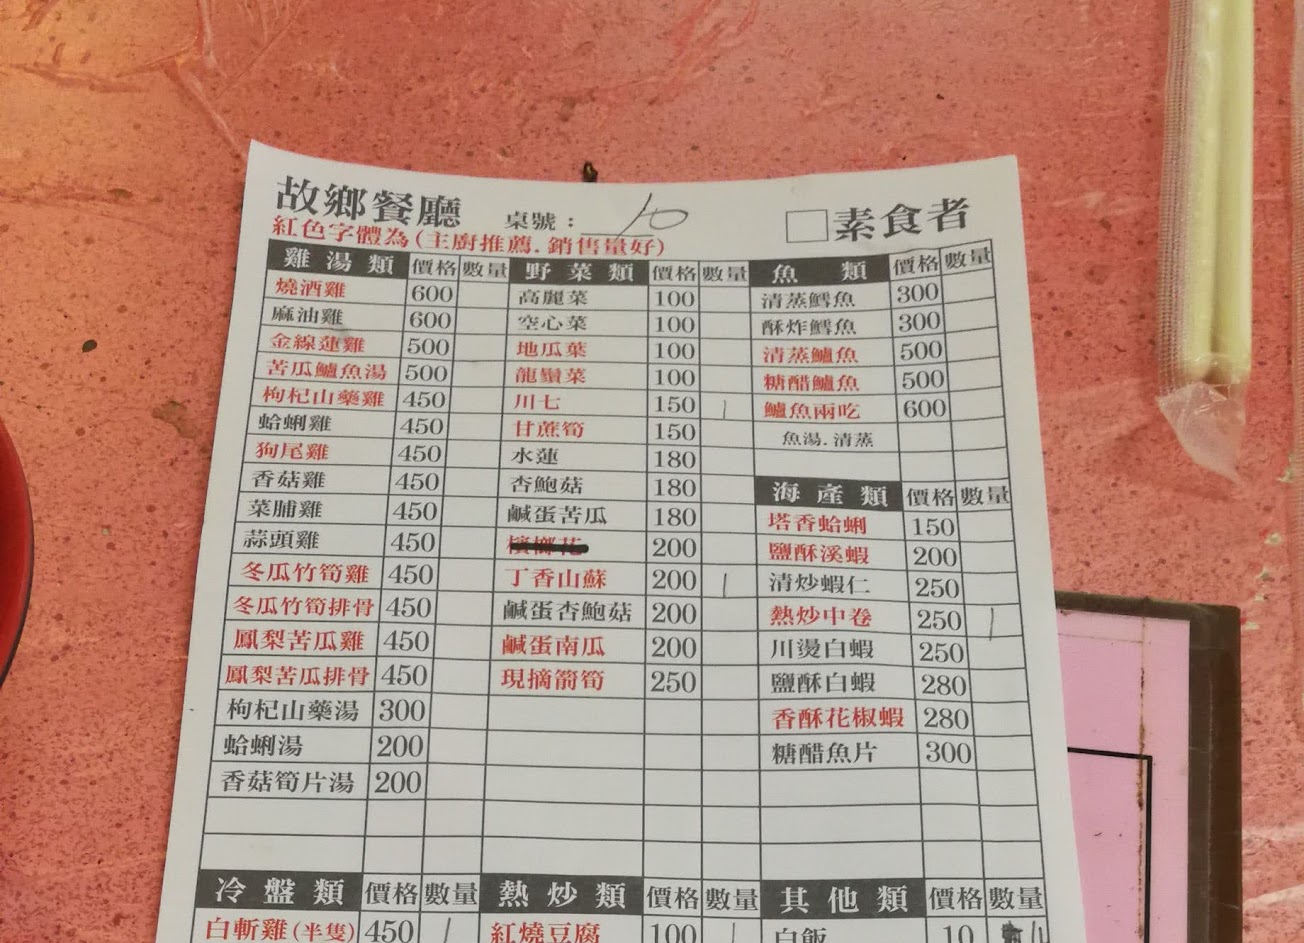 故鄉餐廳 桌號：10 □素食者
紅色字體為(主廚推薦.銷售量好)
雞湯類 價格 數量
燒酒雞 600
麻油雞 600
金線蓮雞 500
苦瓜鱸魚湯 500
枸杞山藥雞 450
蛤蜊雞 450
狗尾雞 450
香菇雞 450
菜脯雞 450
蒜頭雞 450
冬瓜竹筍雞 450
冬瓜竹筍排骨 450
鳳梨苦瓜雞 450
鳳梨苦瓜排骨 450
枸杞山藥湯 300
蛤蜊湯 200
香菇筍片湯 200
野菜類 價格 數量
高麗菜 100
空心菜 100
地瓜葉 100
龍鬚菜 100
川七 150 1
甘蔗筍 150
水蓮 180
杏鮑菇 180
鹹蛋苦瓜 180
檳榔花 200
丁香山蘇 200 1
鹹蛋杏鮑菇 200
鹹蛋南瓜 200
現摘箭筍 250
魚類 價格 數量
清蒸鱈魚 300
酥炸鱈魚 300
清蒸鱸魚 500
糖醋鱸魚 500
鱸魚兩吃 600
魚湯.清蒸
海產類 價格 數量
塔香蛤蜊 150
鹽酥溪蝦 200
清炒蝦仁 250
熱炒中卷 250 1
川燙白蝦 250
鹽酥白蝦 280
香酥花椒蝦 280
糖醋魚片 300
冷盤類 價格 數量
白斬雞(半隻) 450 1
熱炒類 價格 數量
紅燒豆腐 100 1
其他類 價格 數量
白飯 10